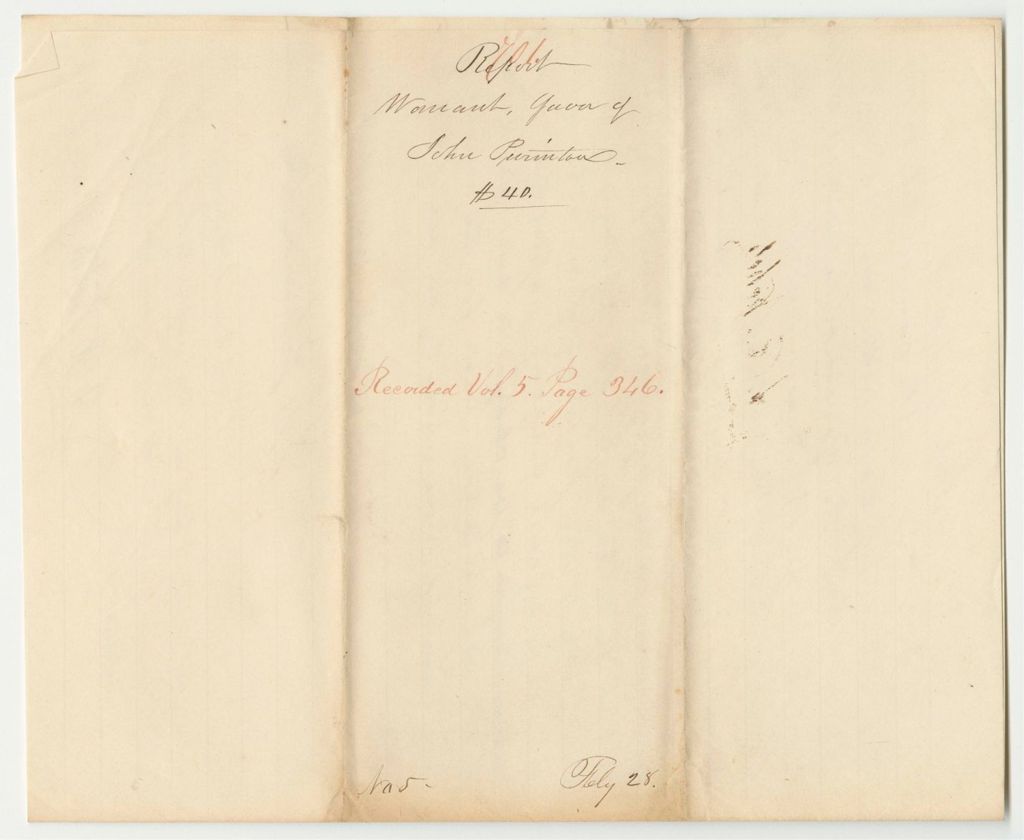 Report
Warrant, favor of
John Purinton.
$40.
Recorded Vol. 5. Page 346.
No 5.
Feby 28.